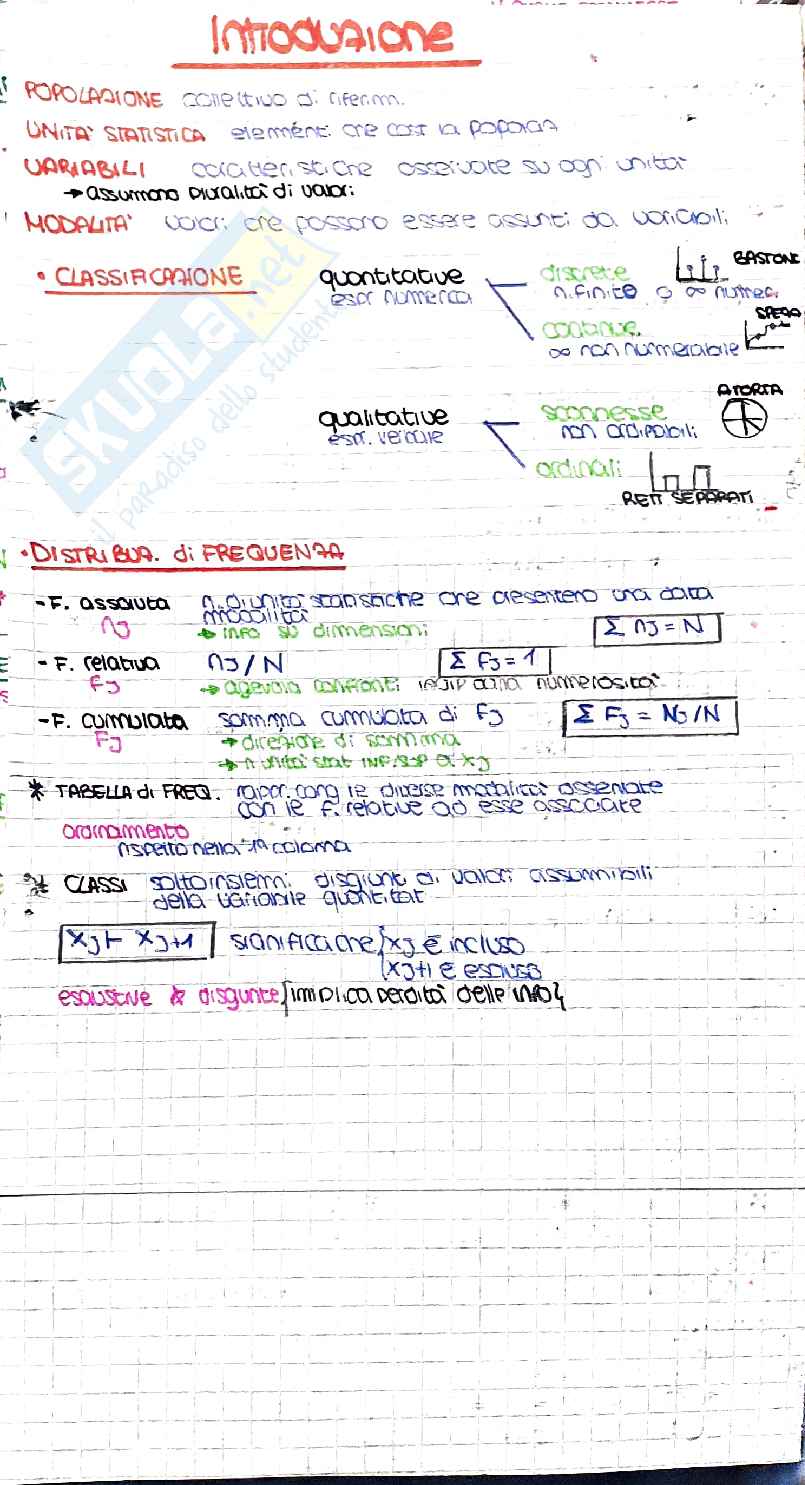 Introduzione
POPOLAZIONE collettivo di riferim.
UNITA' STATISTICA elementi che cost la popolaz
VARIABILI caratteristiche osservate su ogni unità
→ assumono pluralità di valori
MODALITA' valori che possono essere assunti da variabili
• CLASSIFICAZIONE quantitative discrete BASTONE
espr numerica n.finito o ∞ numer.
continue SPEZZ
∞ non numerabile
qualitative sconnesse A TORTA
espr. verbale non ordinabili
ordinali
RETT SEPARATI
SKUOLA.net
il paradiso dello studente
• DISTRIBUZ. di FREQUENZA
- F. assoluta n. di unità statistiche che presentero una data
modalità
nj → info su dimensioni Σ nj = N
- F. relativa nj / N Σ Fj = 1
Fj → agevola confronti indip dalla numerosità
- F. cumulata somma cumulata di Fj Σ Fj = Nj/N
Fj → direzione di somma
→ n unità stat INF/SUP a xj
* TABELLA di FREQ. rapor. cong le diverse modalità osservate
con le f. relative ad esse associate
ordinamento
rispetto nella 1ª colonna
* CLASSI sottoinsiemi disgiunti di valori assumibili
della variabile quantitat
xj ⊢ xj+1 significa che { xj è incluso
xj+1 è escluso
esaustive & disgiunte {implica perdita delle info}